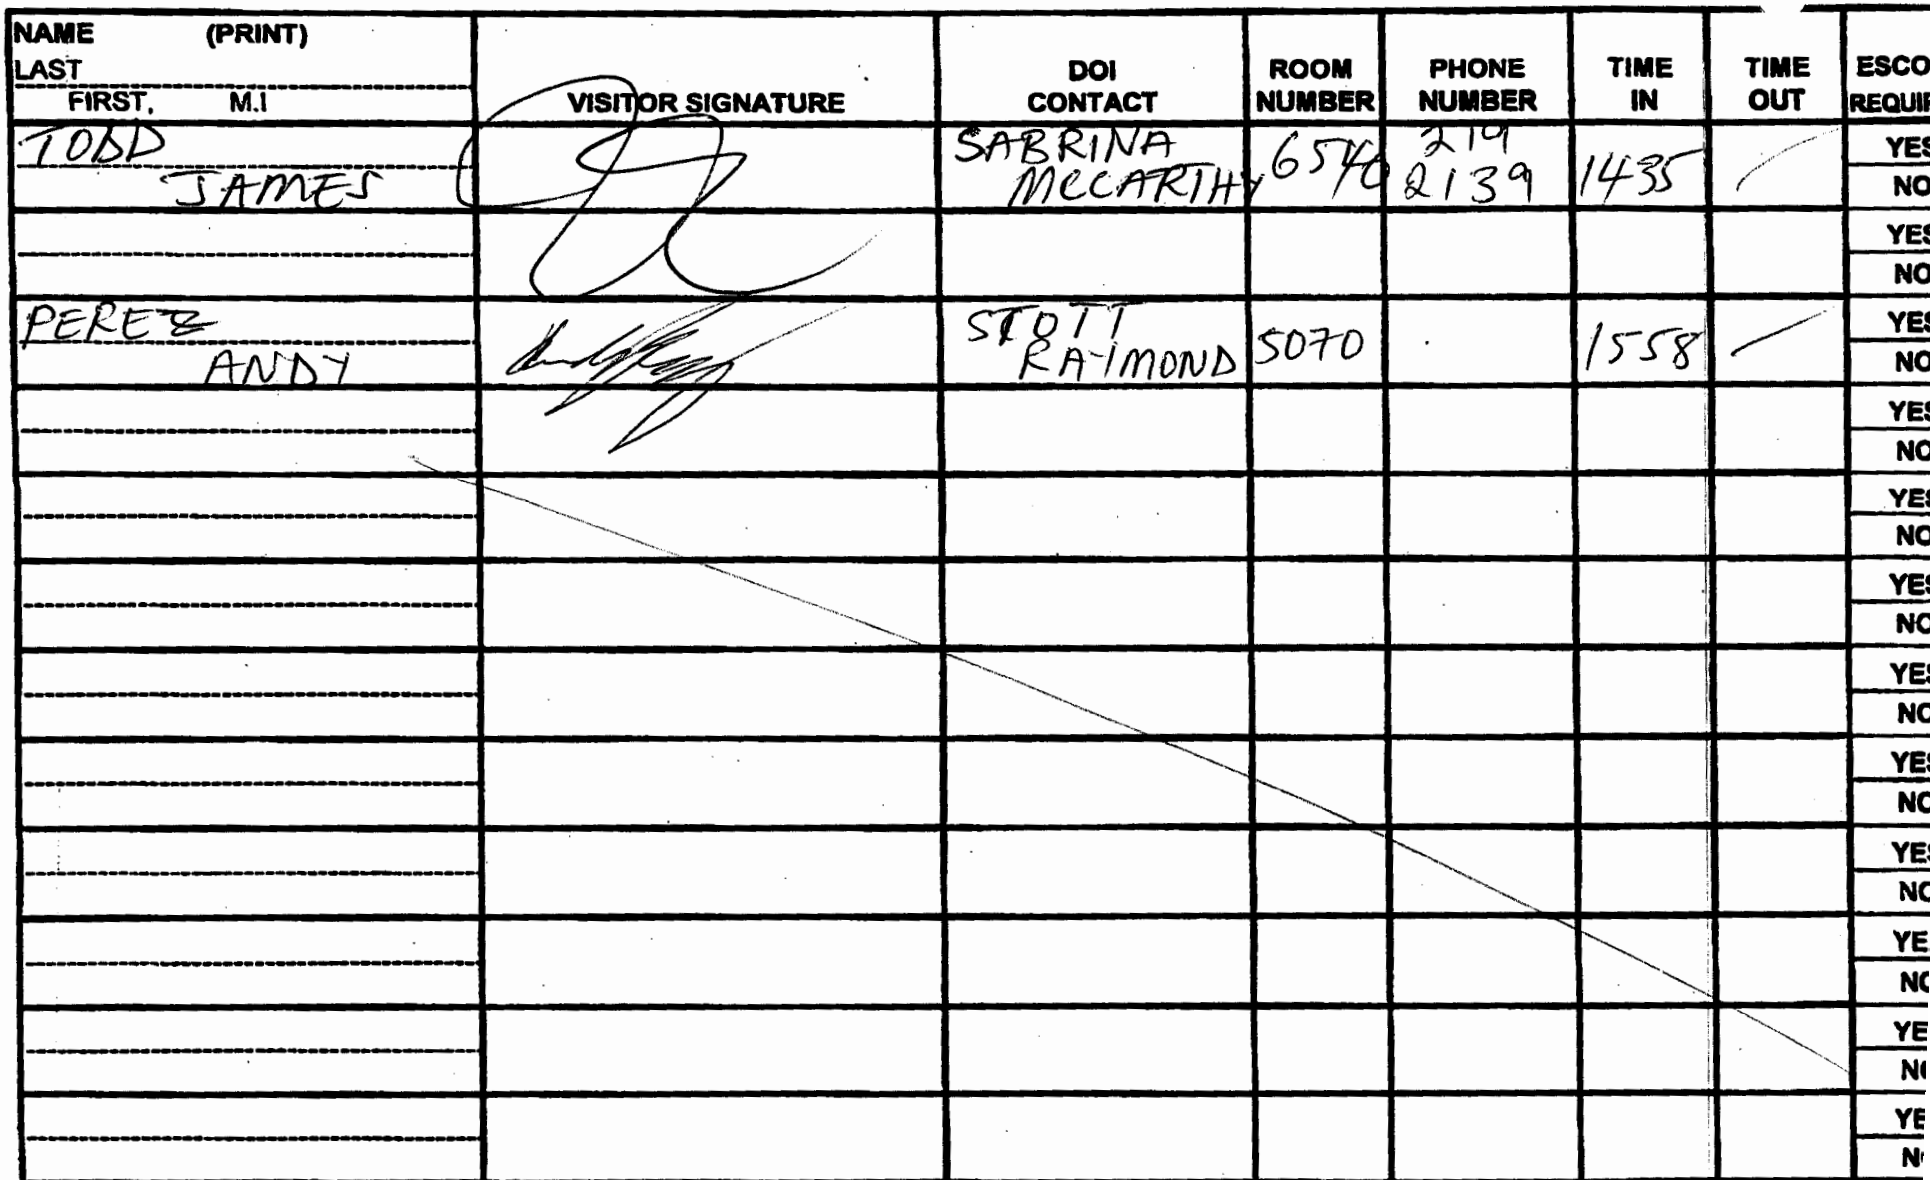 NAME (PRINT)
LAST
FIRST, M.I
VISITOR SIGNATURE
DOI
CONTACT
ROOM
NUMBER
PHONE
NUMBER
TIME
IN
TIME
OUT
ESCO
REQUIR
TODD
JAMES
SABRINA
MCCARTHY
6540
219
2139
1435
YES
NO
YES
NO
PEREZ
ANDY
STOTT
RAYMOND
5070
1558
YES
NO
YES
NO
YES
NO
YES
NO
YES
NO
YES
NO
YES
NO
YE
NO
YE
N
YE
N